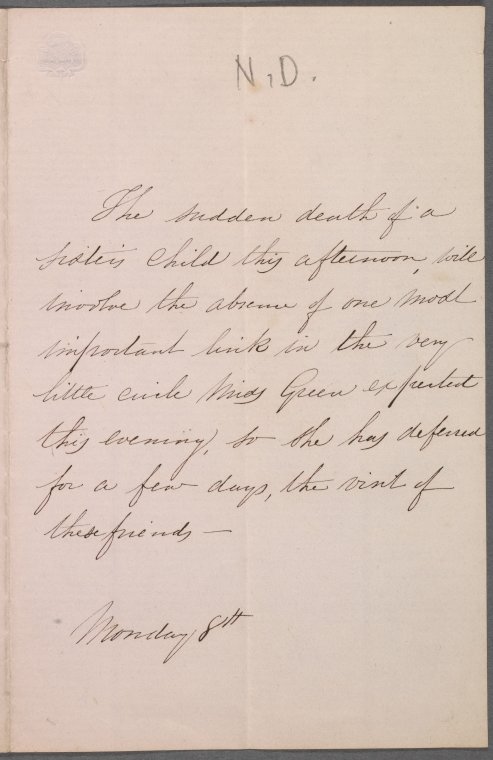 N.D.
The sudden death of a
sister's child this afternoon, will
involve the absence of one most
important link in the very
little circle Miss Green expected
this evening, so she has deferred
for a few days, the visit of
these friends —
Monday 8th